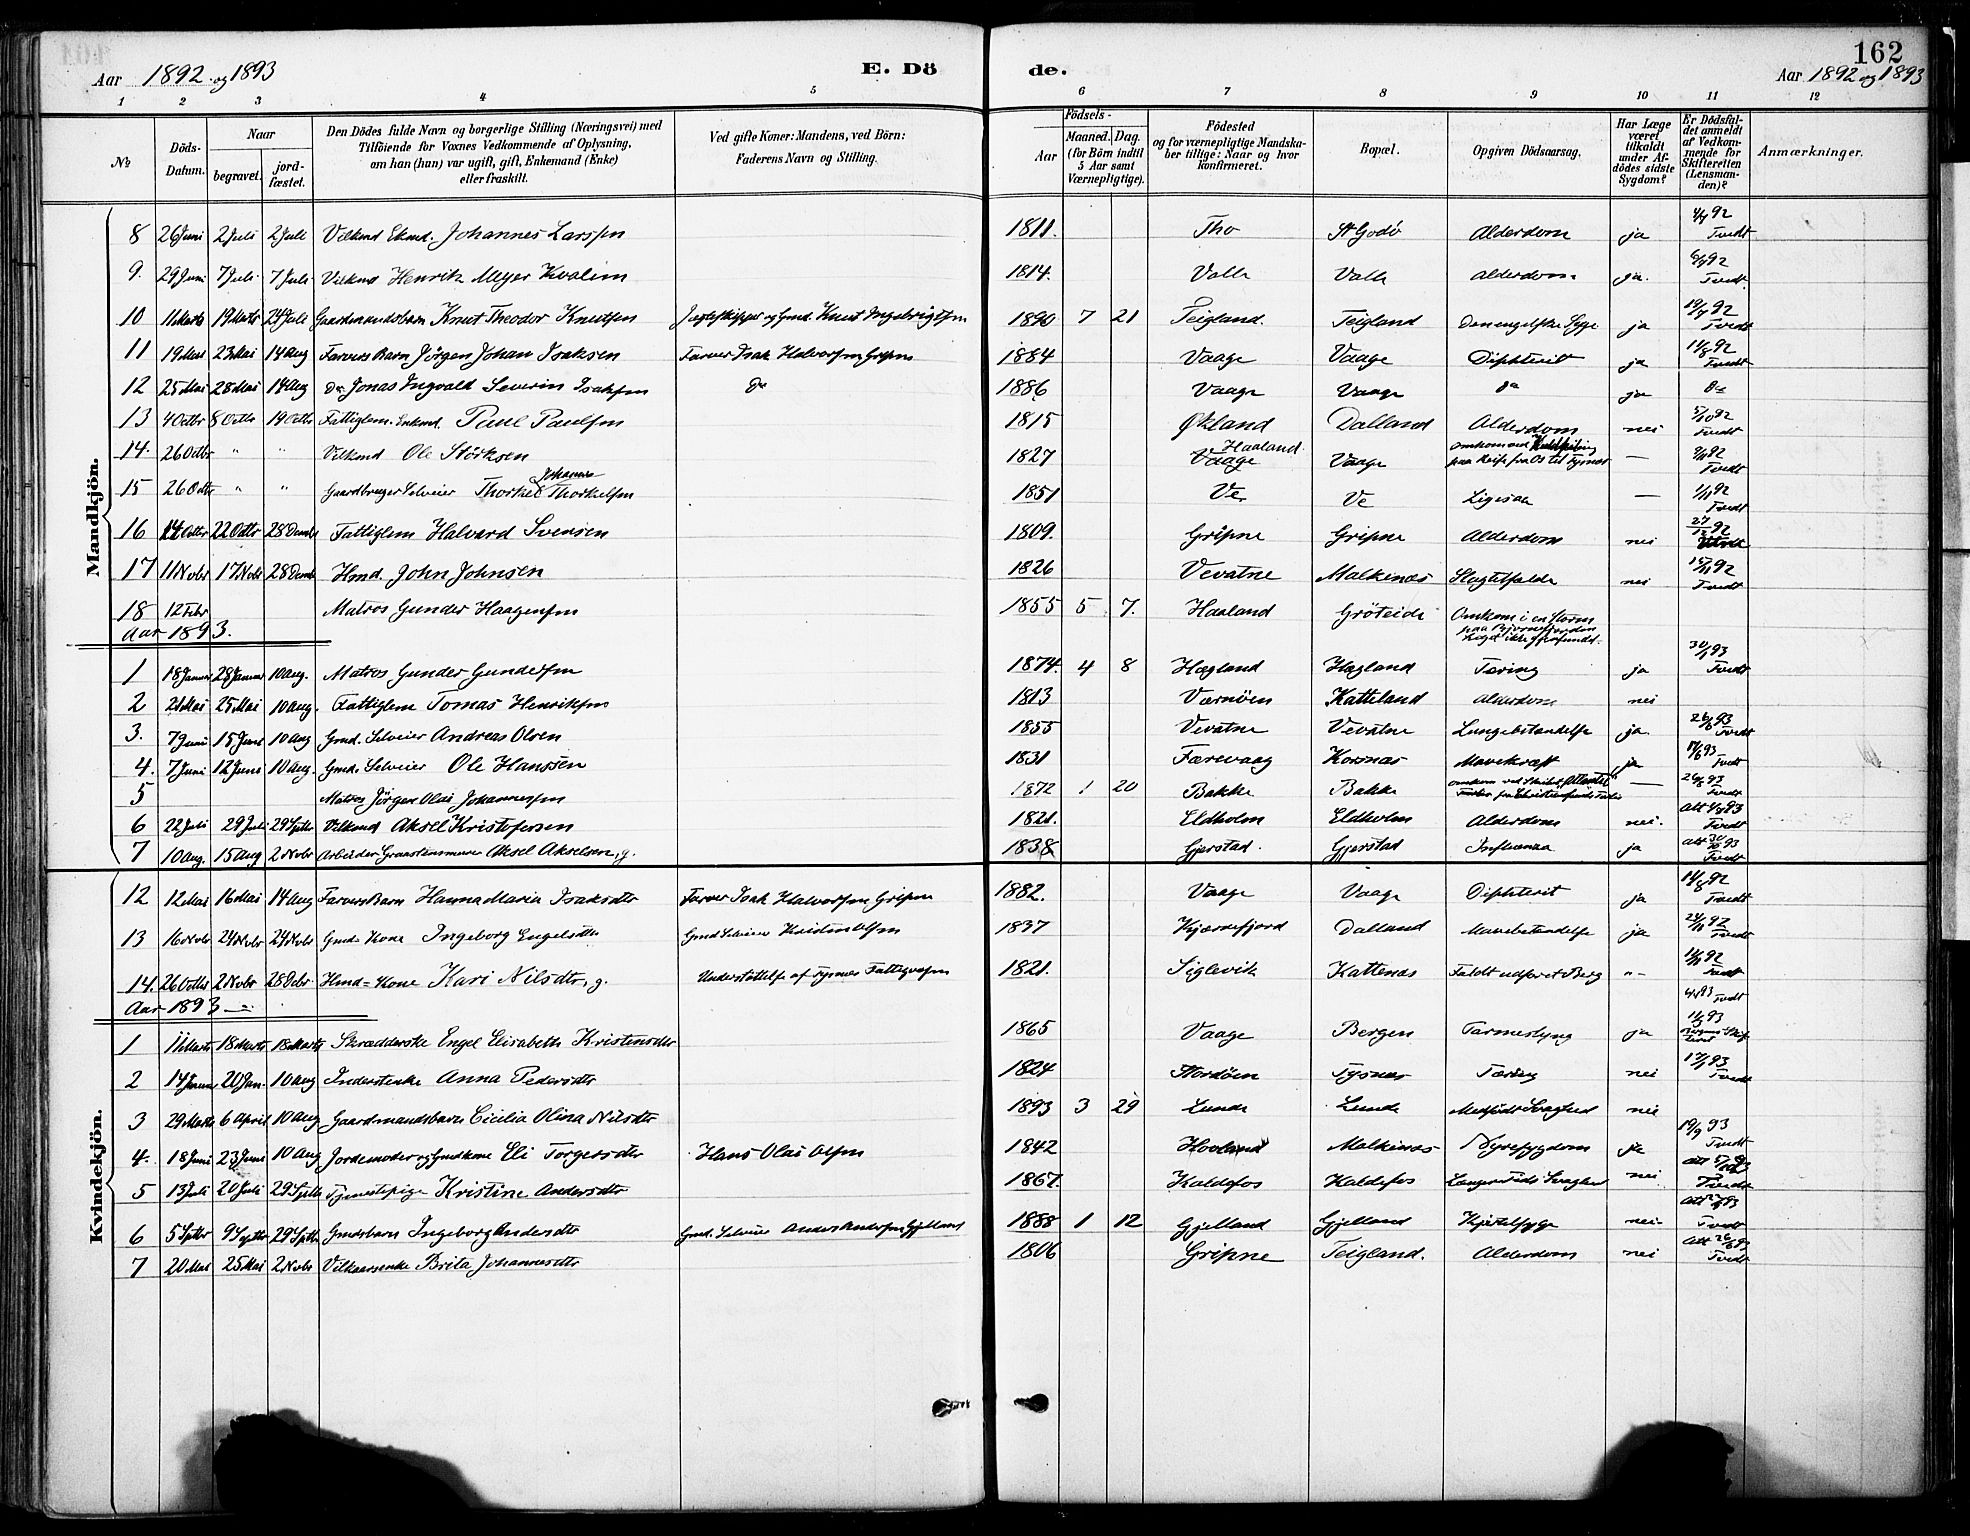 162
Aar 1892 og 1893
E. Dö
de.
Aar 1892 og 1893
1 2 3 4 5 6 7 8 9 10 11 12
No
Döds-Datum.
Naar
begravet.
jord-fæstet.
Den Dödes fulde Navn og borgerlige Stilling (Næringsvei) med
Tilföiende for Voxnes Vedkommende af Oplysning,
om han (hun) var ugift, gift, Enkemand (Enke)
eller fraskilt.
Ved gifte Koner: Mandens, ved Börn:
Faderens Navn og Stilling.
Födsels-
Aar
Maaned.
Dag.
(for Börn indtil
5 Aar samt
Værnepligtige).
Födested
og for værnepligtige Mandska-
ber tillige: Naar og hvor
konfirmeret.
Bopæl.
Opgiven Dödsaarsag.
Har Læge
været
tilkaldt
under Af-
dödes sidste
Sygdom?
Er Dödsfal-
det anmeldt
af Vedkom-
mende for
Skifteretten
(Lensman-
den)?
Anmærkninger.
Mandkjön.
8 26 Juni 2 Juli 2 Juli Vilkmd Ekmd. Johannes Larssen 1811. Tho St Godö Alderdom ja Tvedt
9. 29 Juni 7 Juli 7 Juli Vilkmd Henrik Meyer Kvalem 1814. Valle Valle Alderdom ja. Tvedt
10 11 Marts 19 Marts 24 Juli Gaardmandsbarn Knut Theodor Knutsen Jagteskipper og Gmd. Knut Ingebrigtsen 1890 7 21 Teigland. Teigland Den engelske Syge ja Tvedt
11 19 Mai 23 Mai 14 Aug Farvers Barn Jörgen Johan Isaksen Farver Isak Halvorsen Gripne 1884 Vaage Vaage Difhterit ja Tvedt
12 25 Mai 28 Mai 14 Aug Do Jonas Ingvald Severin Isaksen Do 1886 Vaage Vaage Do ja Do
13 4 Octbr 8 Octbr 19 Octbr Fattiglem. Enkmd. Paul Paulsen 1815 Ökland Dalland Alderdom nei Tvedt
14. 26 Octbr " " Vilkmd Ole Störksen 1827 Haaland Vaage Vaage Omkom ved paa Reise fra Os til Tysnes — Tvedt
15 26 Octbr " " Gaardbruger Selveier Thorkel Johannes Thorkelsen 1851 Ve Ve Ligesaa — Tvedt
16 14 Octbr 22 Octbr 28 Decmbr Fattiglem Halvard Svensen 1809. Gripne Gripne Alderdom nei
17 11 Novbr 17 Novbr 28 Decmbr Hmd. John Johnsen 1826 Vevatne Malkenæs Slagtilfælde nei Tvedt
18 12 Febr Matros Gunder Haagensen 1855 5 7. Haaland Gröteide Omkom i en Storm paa Björnefjorden Liget ikke gjenfundet.
Aar 1893.
1 18 Januar 28 Januar 10 Aug. Matros Gunder Gundersen 1874. 4 8 Hagland Hagland Tæring ja Tvedt
2 21 Mai 25 Mai 10 Aug. Fattiglem Tomas Henriksen 1813 Værnöen Katteland Alderdom nei
3. 7 Juni 15 Juni 10 Aug Gmd. Selveier Andreas Olsen 1855 Vevatne Vevatne Lungebetændelse ja. Tvedt
4. 7 Juni 12 Juni 10 Aug. Gmd. Selveier Ole Hanssen 1831 Færevaag Korsnæs Mavekræft ja Tvedt
5 Matros Jörgen Olai Johannessen 1872 1 20 Bakke Bakke — Tvedt
6 22 Juli 29 Juli 29 Septbr Vilkmd Aksel Kristofersen 1821. Eldholm Eldholm Alderdom nei. Tvedt
7 10 Aug. 15 Aug 2 Novbr Arbeider Aksel Akselsen, g. 1838 Gjerstad. Gjerstad Influenza ja Tvedt
Kvindekjön.
12 12 Mai 16 Mai 14 Aug Farvers Barn Hanna Maria Isaksdtr Farver Isak Halvorsen Gripne 1882. Vaage Vaage Difhterit ja Tvedt
13 16 Novbr 24 Novbr 24 Novbr Gmd. Kone Ingeborg Engelsdtr Gmd Selveier Kristen Olsen 1837 Kjærnefjord Dalland Mavebetændelse ja Tvedt
14. 26 Octbr 2 Novbr 28 Debr. Hmd= Kone Kari Nilsdtr, g. Understöttelse af Tysnes Fattigvæsen 1821. Siglevik Kattenæs Faldt udfor et Berg "- Tvedt
Aar 1893
1 11 Marts 18 Marts 18 Marts Skrædderske Engel Elisabeth Kristensdtr 1865 Vaage Bergen Tarmeslyng ja
2 14 Januar 20 Jan. 10 Aug Inderstenke Anna Pedersdtr 1824 Stordöen Tysnes Tæring nei Tvedt
3 29 Marts 6 April 10 Aug Gaardmandsbarn Cicilia Olina Nilsdtr 1893 3 29 Lunde Lunde Medfödt Svaghed nei
4. 18 Juni 23 Juni 10 Aug Jordemoder og Gmdkone Eli Torgersdtr Hans Olai Olsen 1842 Hovland Malkenæs Nyresygdom ja Tvedt
5 13 Juli 20 Juli 29 Septbr Tjenestepige Kristine Andersdtr 1867. Kaldefos Kaldefos Langvar Tids Svaghed nei Tvedt
6 5 Septbr 9 Septbr 29 Septbr Gmdsbarn Ingeborg Andersdtr Gmd. Selveier Anders Andersen Gjelland 1888 1 12 Gjelland Gjelland Kjertelsyge nei Tvedt
7 20 Mai 25 Mai 2 Novbr Vilkaarsenke Brita Johannesdtr 1806 Gripne Teigland. Alderdom nei Tvedt